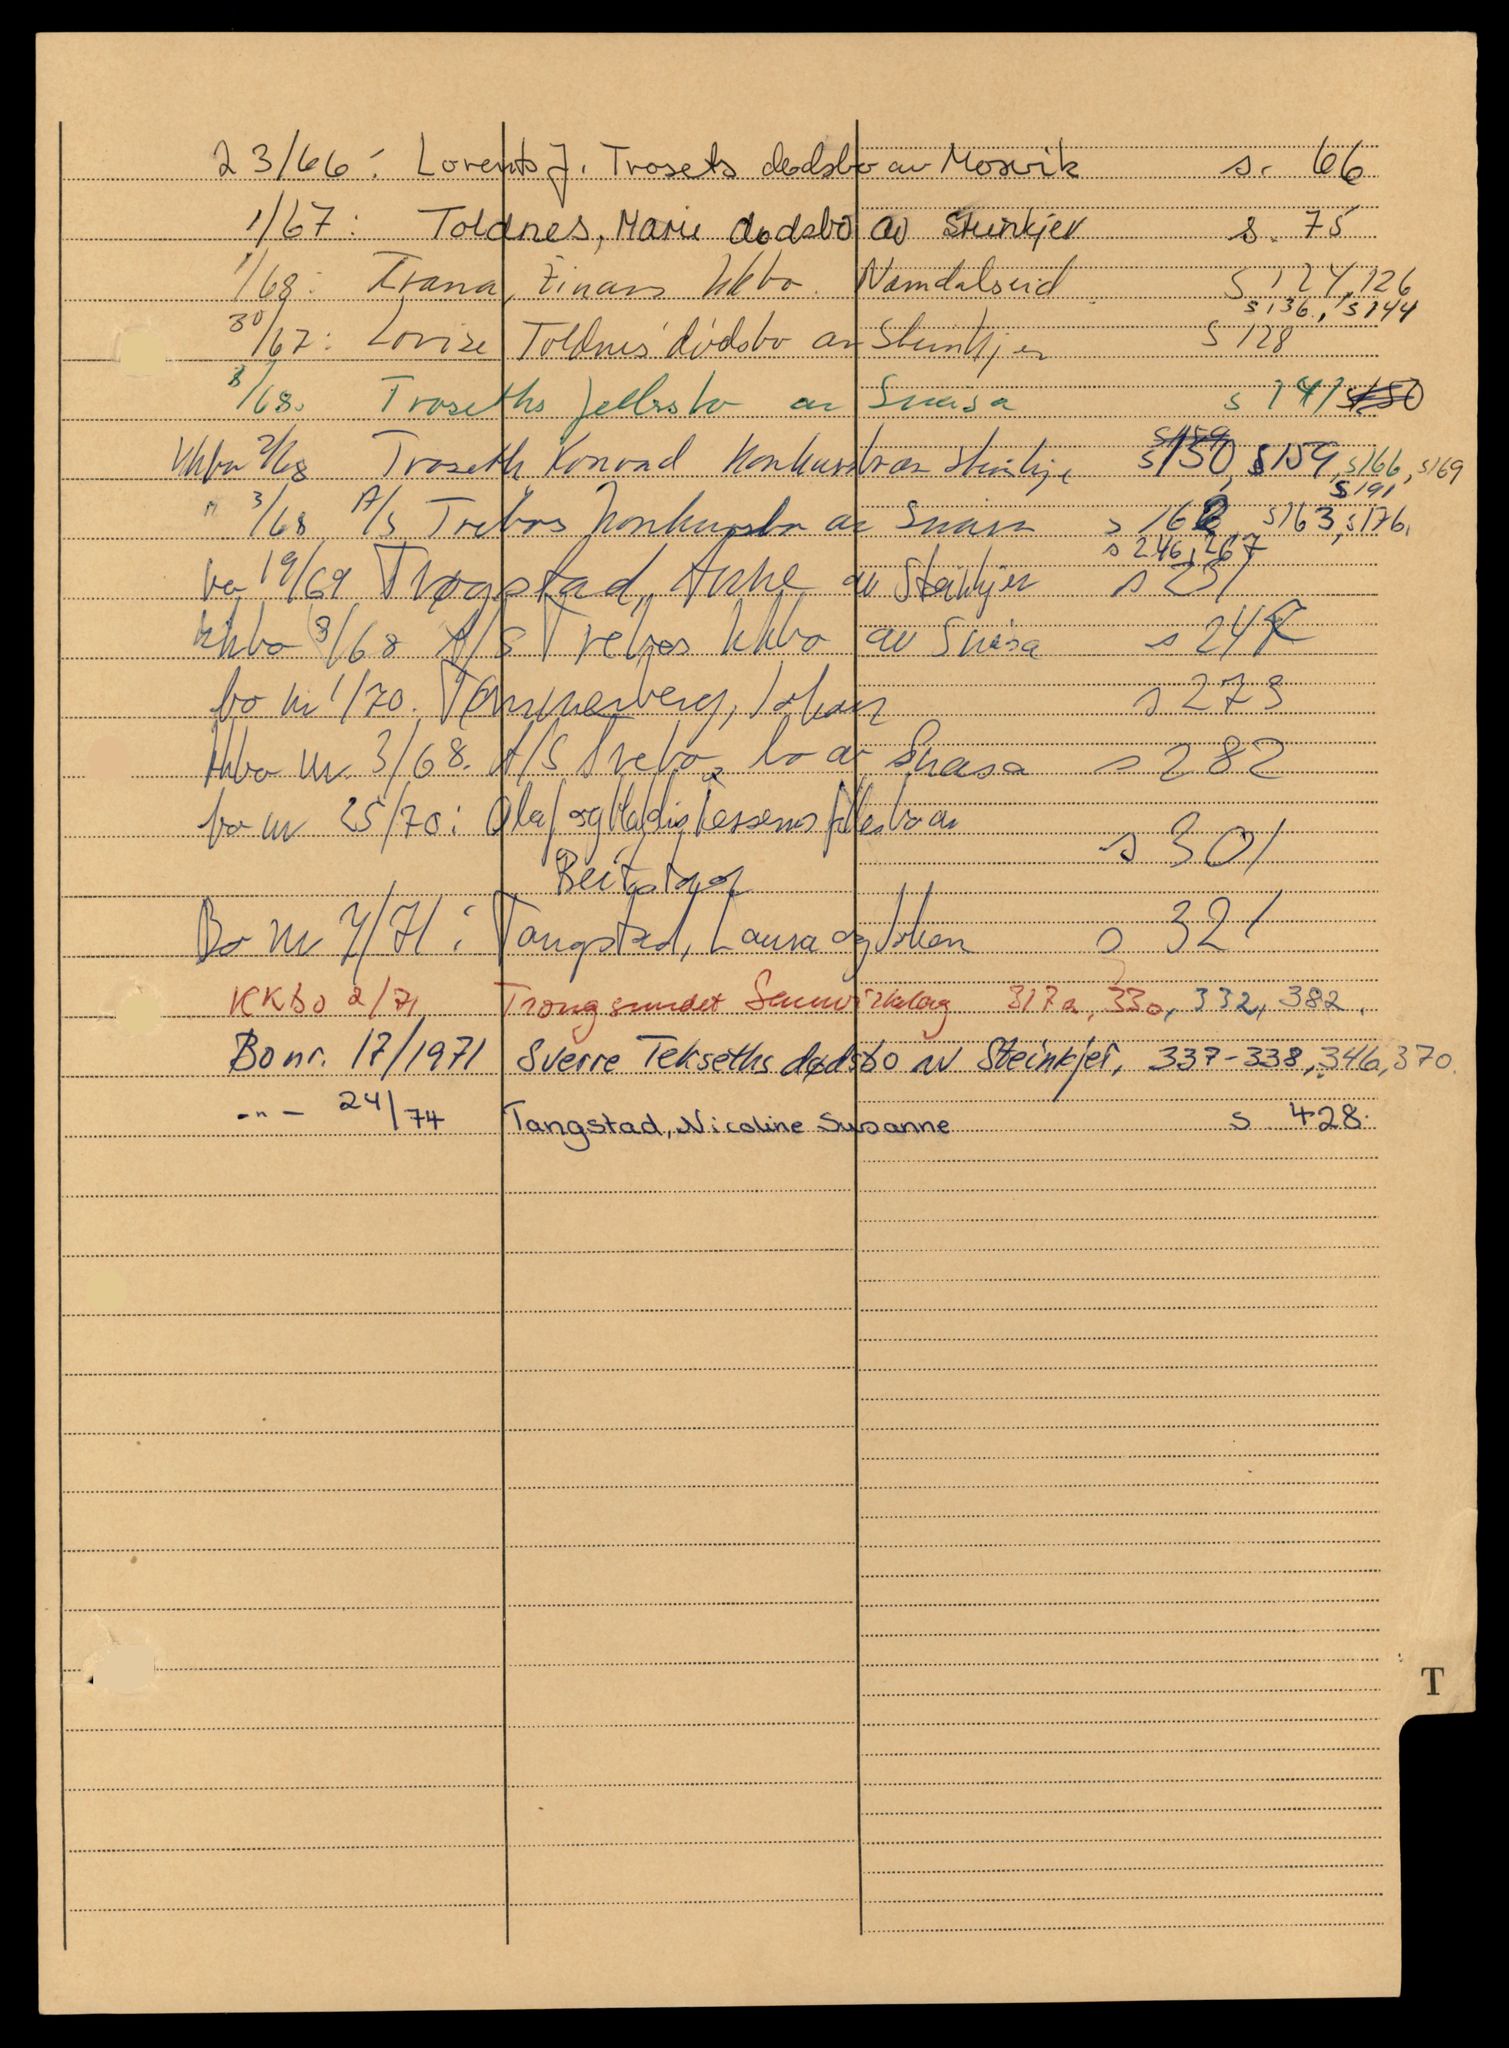 23/66: Lorents J. Trosets dødsbo av Mosvik s. 66
1/67: Toldnes, Marie dødsbo av Steinkjer s. 75
1/68: Trana, Einars kkbo. Namdalseid s 124, 126
s 136, s 144
30/67: Lovise Toldnes dødsbo av Steinkjer s 128
8/68. Troseths fellesbo av Snåsa s 141 s 150
s 159
kkbo 2/68 Troseth Konrad Konkursbo av Steinkjer s 150, s 159, s 166, s 169
s 191
" 3/68 A/S Trebos konkursbo av Snåsa s 162 s 163, s 176,
s 246, 267
bo 19/69 Trøgstad, av Steinkjer s 231
kkbo 3/68 A/S Trebos kkbo av Snåsa s 247
bo nr 1/70. Tømmerberg, Johan s 273
kkbo nr. 3/68. A/S Trebo, bo av Snåsa s 282
bo nr 25/70: Olaf og fellesbo av
Beitstad s 301
Bo nr 7/71: Tangstad, Laura og Johan s 321
KKbo 2/71 Trongsundet Samvirkelag 317a, 330, 332, 382.
Bo nr. 17/1971 Sverre Tekseths dødsbo av Steinkjer, 337-338, 346, 370.
-"- 24/74 Tangstad, Nicoline Susanne s 428.
T